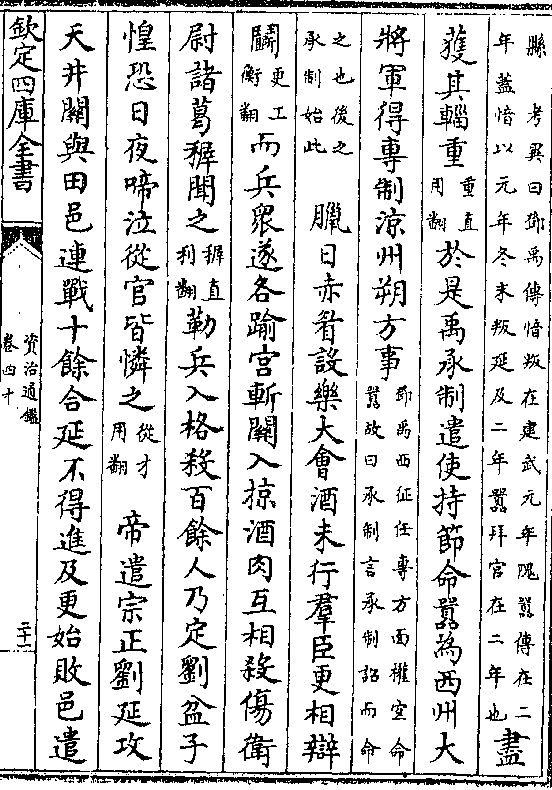 縣　考異曰鄧禹傳愔叛在建武元年隗囂傳在二
年蓋愔以元年冬末叛延及二年囂拜官在二年也
盡
獲其輜重
重直
用翻
於是禹承制遣使持節命囂為西州大
將軍得專制涼州朔方事
鄧禹西征任專方面權宜命
囂故曰承制言承制詔而命
之也後之
承制始此
臘日赤眉設樂大會酒未行羣臣更相辯
鬭
更工
衡翻
而兵衆遂各踰宫斬關入掠酒肉互相殺傷衛
尉諸葛穉聞之
穉直
利翻
勒兵入格殺百餘人乃定劉盆子
惶恐日夜啼泣從官皆憐之
從才
用翻
帝遣宗正劉延攻
天井關與田邑連戰十餘合延不得進及更始敗邑遣
欽定四庫全書
資治通鑑
卷四十
二十一